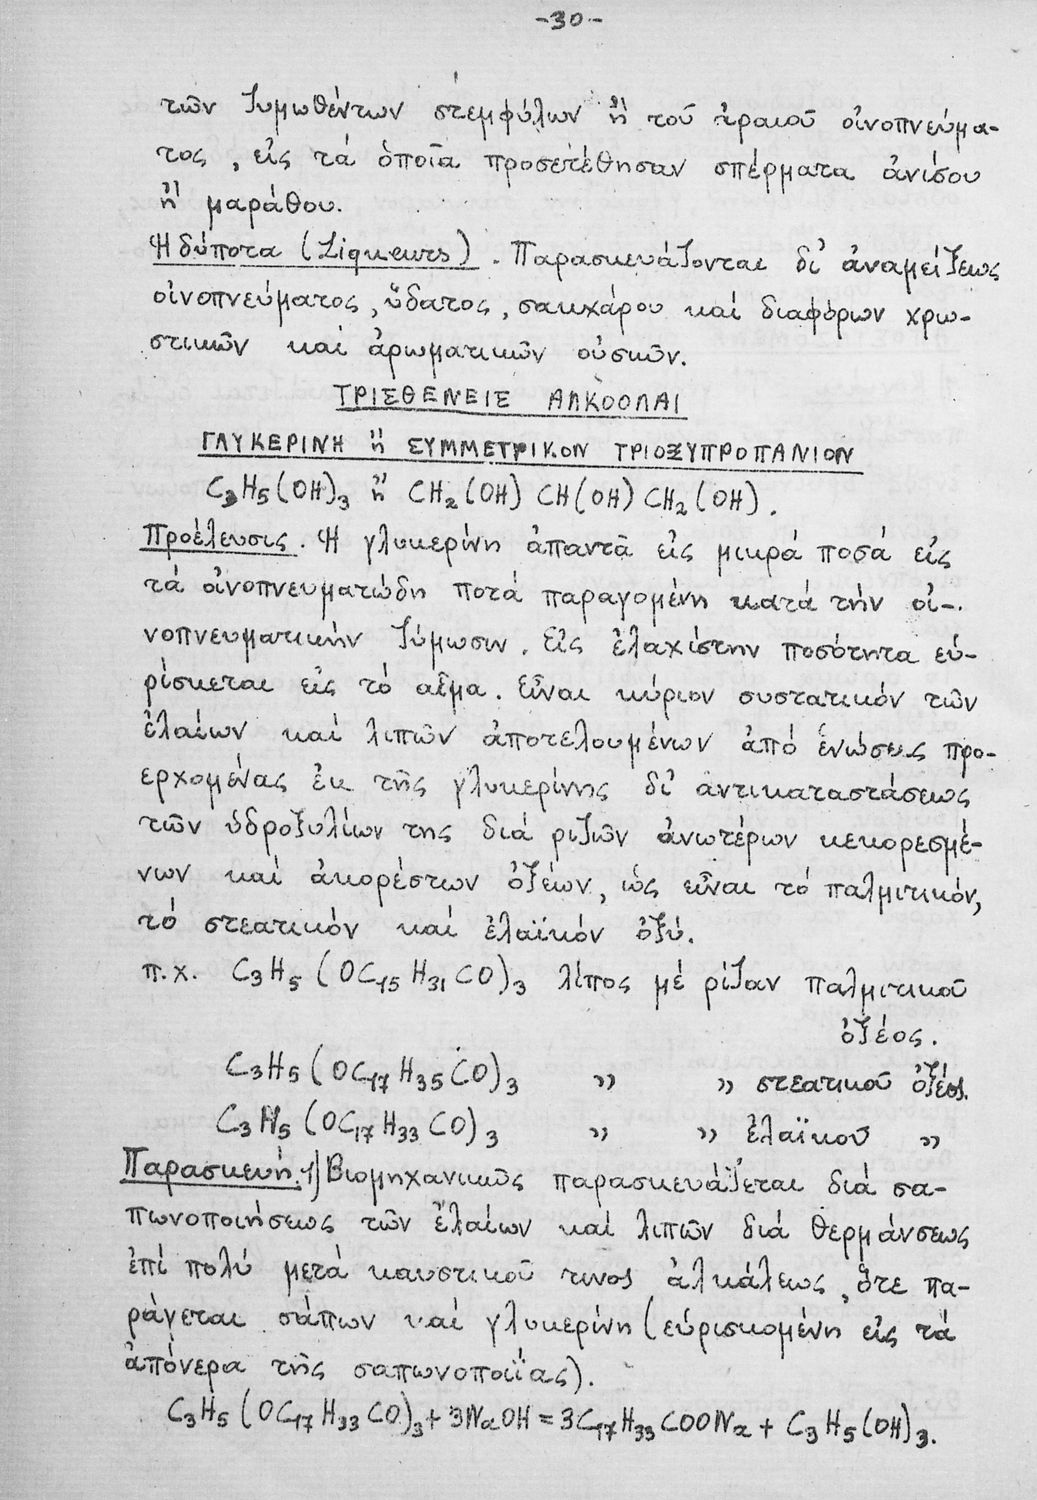 -30-
τῶν ζυμωθέντων στεμφύλων ἢ τοῦ ἀραιοῦ οἰνοπνεύμα-
τος, εἰς τά ὁποῖα προσετέθησαν σπέρματα ἀνίσου
ἢ μαράθου.
Ἡδύποτα (Liqueurs). Παρασκευάζονται δι' ἀναμείξεως
οἰνοπνεύματος, ὕδατος, σακχάρου καί διαφόρων χρω-
στικῶν καί ἀρωματικῶν οὐσιῶν.
ΤΡΙΣΘΕΝΕΙΣ ΑΛΚΟΟΛΑΙ
ΓΛΥΚΕΡΙΝΗ ἢ ΣΥΜΜΕΤΡΙΚΟΝ ΤΡΙΟΞΥΠΡΟΠΑΝΙΟΝ
C₃H₅(OH)₃ ἢ CH₂(OH) CH(OH) CH₂(OH).
Προέλευσις. Ἡ γλυκερίνη ἀπαντᾶ εἰς μικρά ποσά εἰς
τά οἰνοπνευματώδη ποτά παραγομένη κατά τήν οἰ-
νοπνευματικήν ζύμωσιν. Εἰς ἐλαχίστην ποσότητα εὑ-
ρίσκεται εἰς τό αἷμα. Εἶναι κύριον συστατικόν τῶν
ἐλαίων καί λιπῶν ἀποτελουμένων ἀπό ἑνώσεις προ-
ερχομένας ἐκ τῆς γλυκερίνης δι' ἀντικαταστάσεως
τῶν ὑδροξυλίων της διά ριζῶν ἀνωτέρων κεκορεσμέ-
νων καί ἀκορέστων ὀξέων, ὡς εἶναι τό παλμιτικόν,
τό στεατικόν καί ἐλαϊκόν ὀξύ.
π.χ. C₃H₅(OC₁₅H₃₁CO)₃ λίπος μέ ρίζαν παλμιτικοῦ
ὀξέος.
C₃H₅(OC₁₇H₃₅CO)₃ " " στεατικοῦ ὀξέος.
C₃H₅(OC₁₇H₃₃CO)₃ " " ἐλαϊκοῦ "
Παρασκευή. 1) Βιομηχανικῶς παρασκευάζεται διά σα-
πωνοποιήσεως τῶν ἐλαίων καί λιπῶν διά θερμάνσεως
ἐπί πολύ μετά καυστικοῦ τινος ἀλκάλεως, ὅτε πα-
ράγεται σάπων καί γλυκερίνη (εὑρισκομένη εἰς τά
ἀπόνερα τῆς σαπωνοποιΐας).
C₃H₅(OC₁₇H₃₃CO)₃ + 3NaOH = 3C₁₇H₃₃COONa + C₃H₅(OH)₃.